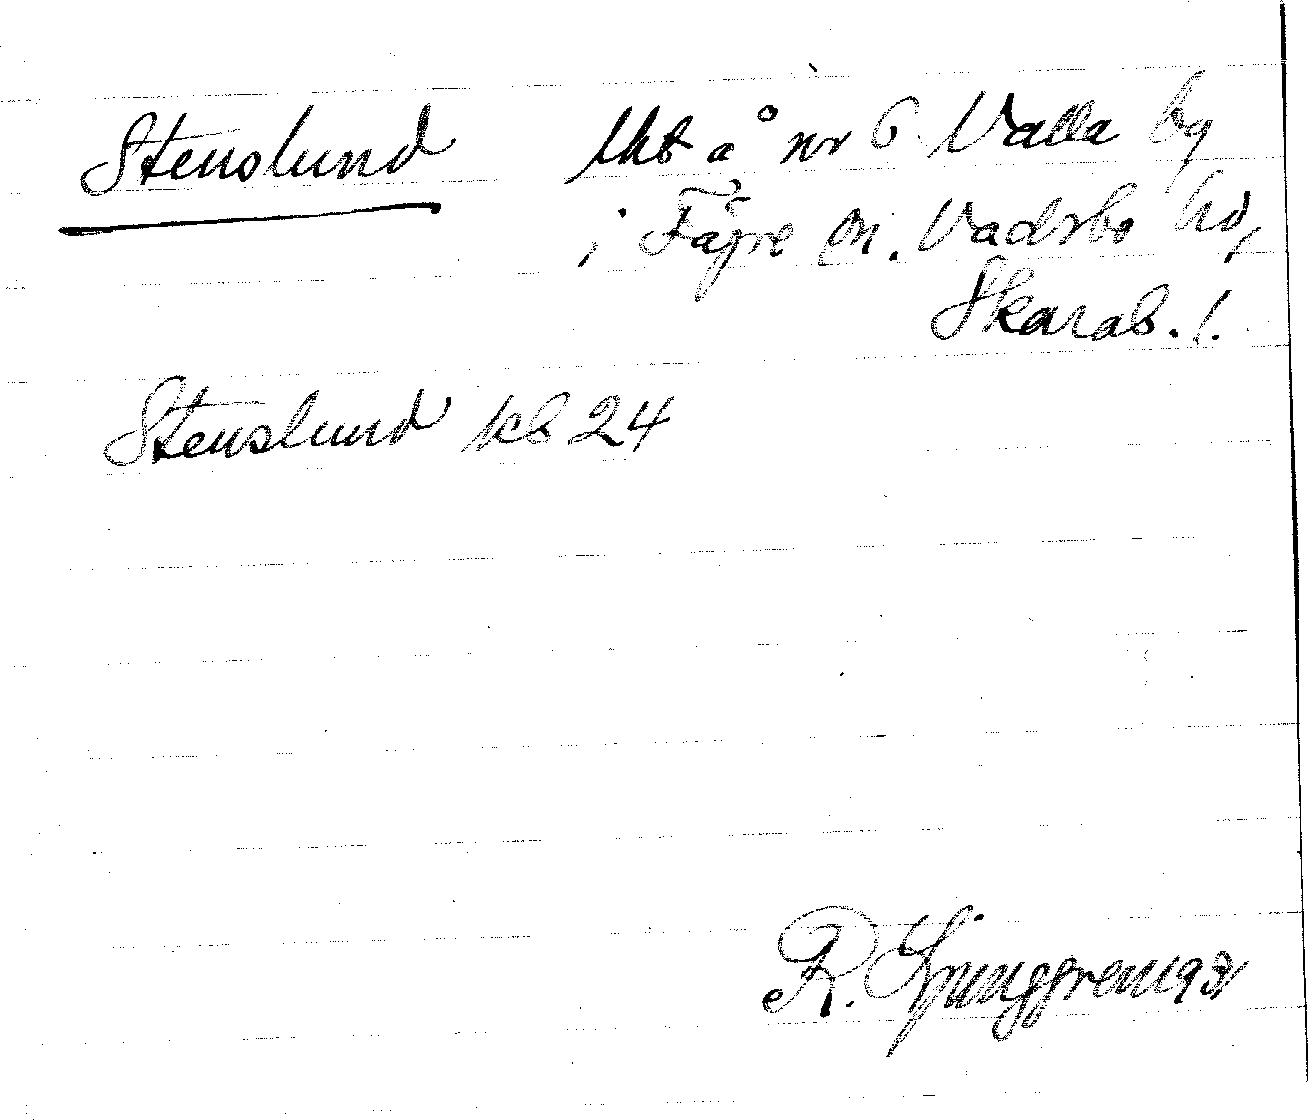 Stenslund lht å nr 6 Valla by
i Fägre sn. Vadsbo hd,
Skarab. l.
Stenslund kb 24
R. Ljunggren 1931